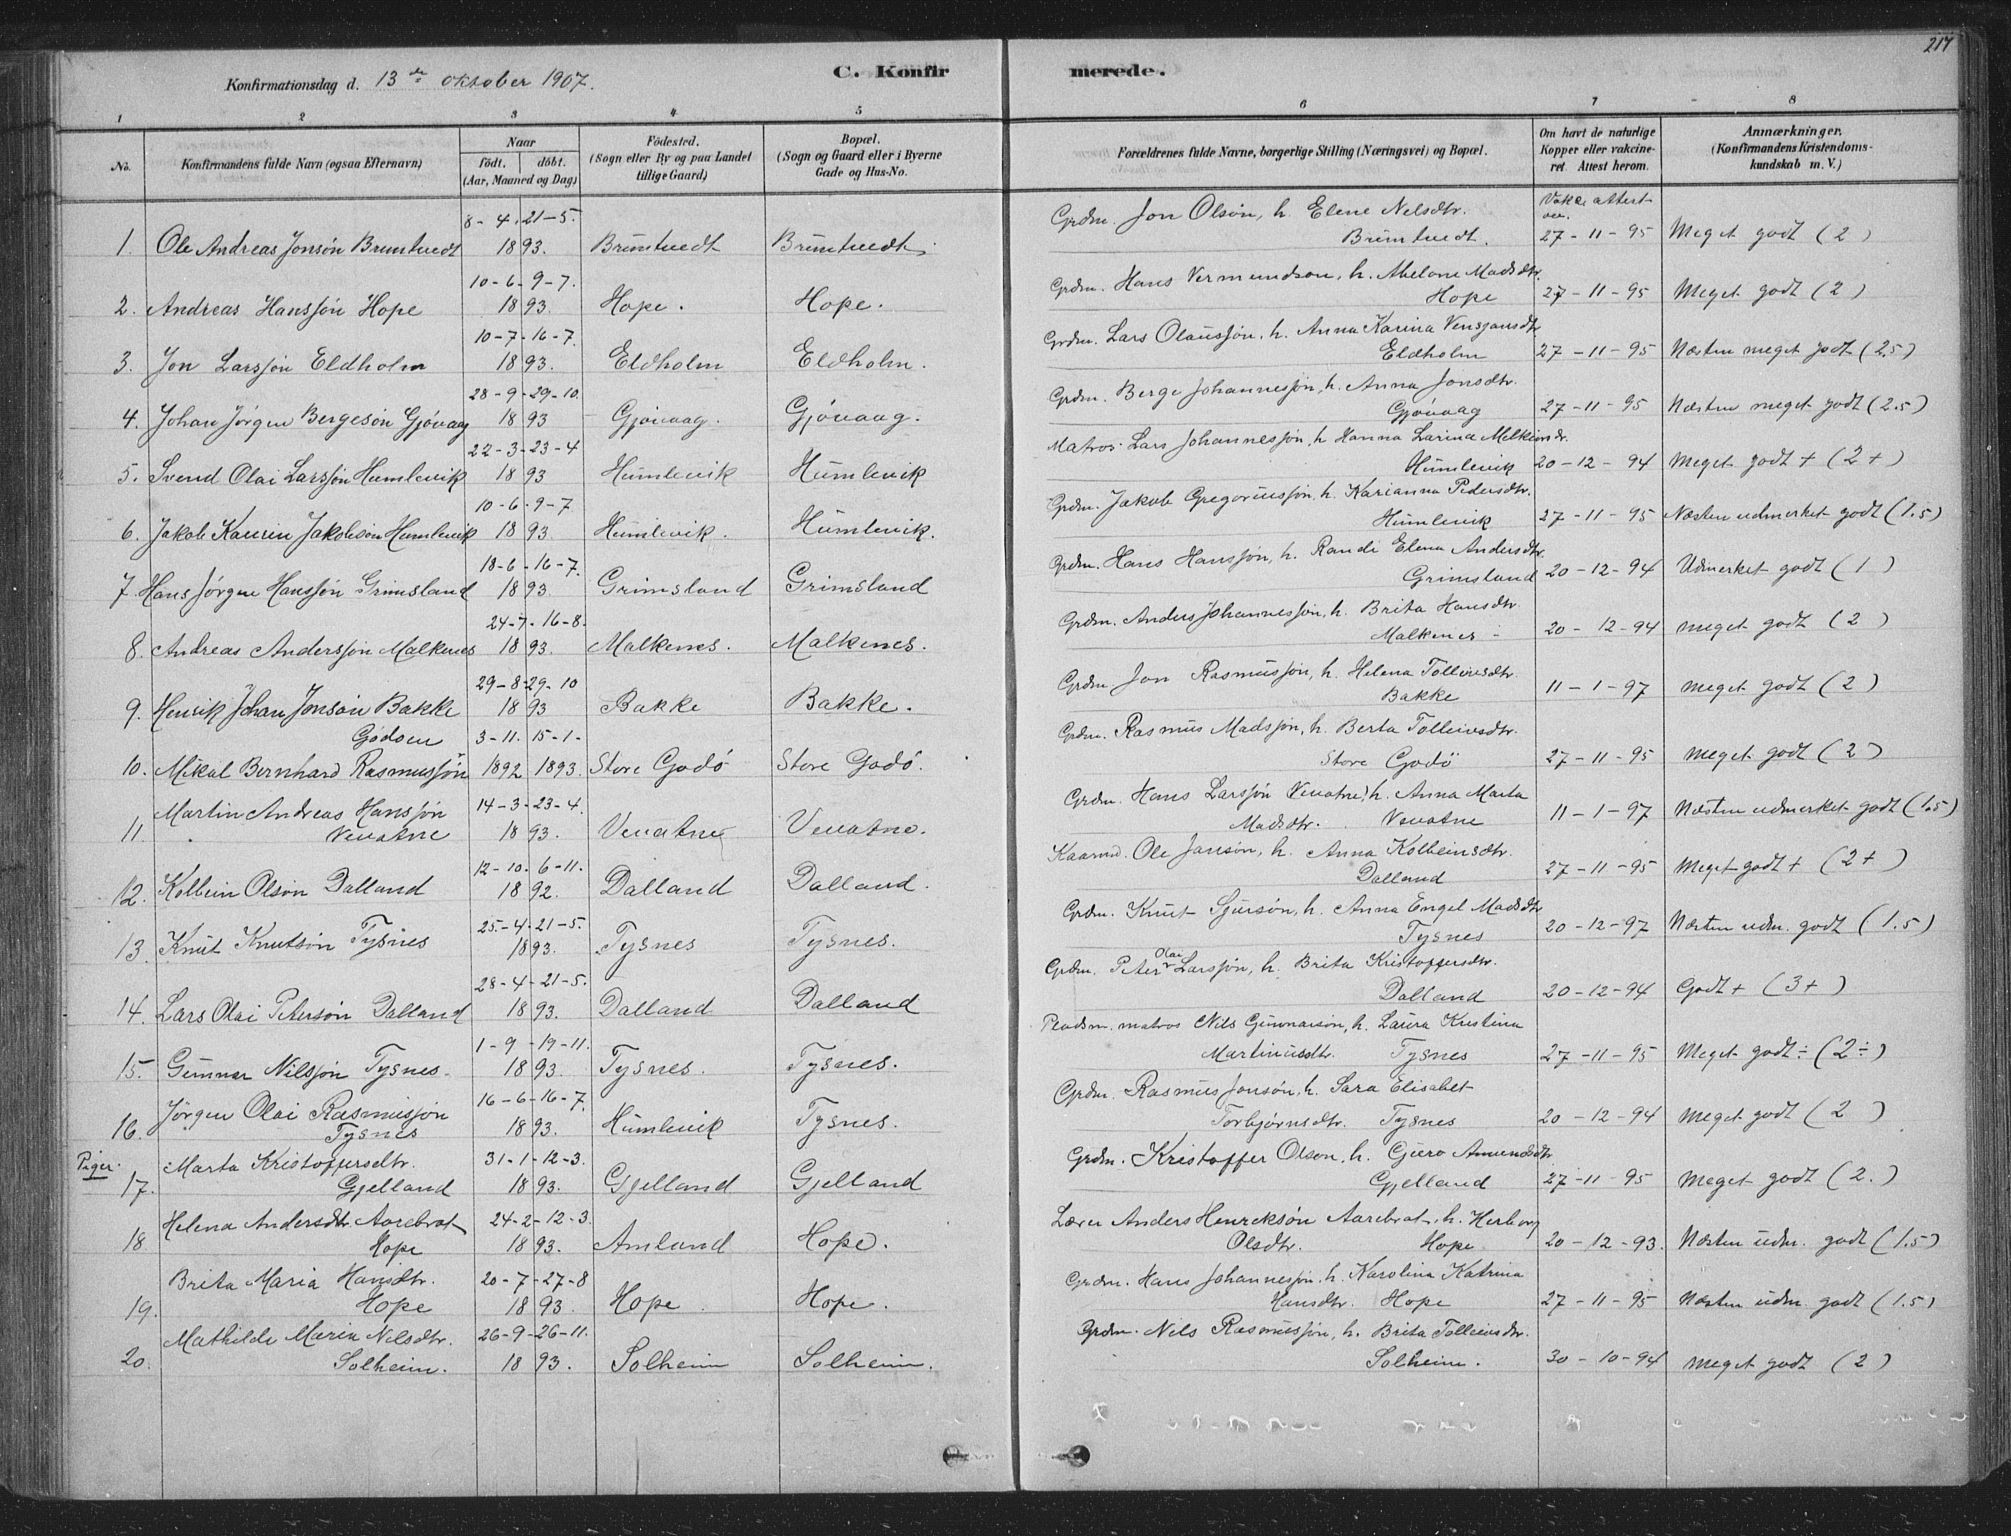 217
Konfirmationsdag d. 13de oktober 1907.
C. Konfirmerede.
1 2 3 4 5 6 7 8
No.
Konfirmandens fulde Navn (ogsaa Efternavn)
Naar
født. døbt.
(Aar, Maaned og Dag)
Födested.
(Sogn eller By og paa Landet
tillige Gaard)
Bopæl.
(Sogn og Gaard eller i Byerne
Gade og Hus-No.
Forældrenes fulde Navne, borgerlige Stilling (Næringsvei) og Bopæl.
Om havt de naturlige
Kopper eller vakcine-
ret Attest herom.
Anmærkninger.
(Konfirmandens Kristendoms-
kundskab m. V.)
8-4. 21-5. Grdm. Jon Olsøn, h. Elene Nelsdtr. attest
1. Ole Andreas Jonsøn Bruntvedt 1893. Bruntvedt Bruntvedt. Bruntvedt. 27-11-95 Meget godt (2)
10-6. 9-7. Grdm. Hans Vermundson, h. Abelone Madsdtr.
2. Andreas Hansson Hope 1893. Hope. Hope. Hope 27-11-95 Meget godt (2)
10-7. 16-7. Grdm. Lars Olausson, h. Anna Karina
3. Jon Larsson Eldholm 1893. Eldholm Eldholm. Eldholm 27-11-95 Næsten meget godt (2.5)
28-9-29-10. Grdm. Berge Johannesson, h. Anna Jonsdtr.
4. Johan Jørgen Bergesøn Gjøvaag 1893 Gjøvaag. Gjøvaag. Gjøvaag 27-11-95 Næsten meget godt (2.5)
22-3-23-4 Matros Lars Johannesson, h. Hanna Larina
5. Svend Olai Larsson Humlevik 1893 Humlevik Humlevik Humlevik 20-12-94 Meget godt + (2+)
10-6. 9-7 Grdm. Jakob Gregoriusson, h. Karianna Pedersdtr.
6. Jakob Kaurin Jakobson Humlevik 1893 Humlevik. Humlevik. Humlevik 27-11-95 Næsten udmerket godt (1.5)
18-6-16-7. Grdm. Hans Hansson, h. Randi Elena Andersdtr.
7. Hans Jørgen Hansson Grimsland 1893. Grimsland Grimsland Grimsland 20-12-94 Udmerket godt (1)
24-7. 16-8. Grdm. Anders Johannesson, h. Brita Hansdtr.
8. Andreas Andersson Malkenes 1893. Malkenes. Malkenes. Malkenes 20-12-94 meget godt (2)
29-8-29-10 Grdm Jon Rasmusson, h. Helena Tolleivsdtr.
9. Henrik Johan Jonsøn Bakke 1893 Bakke Bakke. Bakke 11-1-97 meget godt (2)
Godøen 3-11. 15-1- Grdm. Rasmus Madsson, h. Berta Tolleivsdtr.
10. Mikal Bernhard Rasmusson 1892 1893. Store Godø Store Godø. Store Godø 27-11-95 meget godt (2)
Martin Andreas Hansson 14-3-23-4. Grdm. Hans Larsson Vevatne, h. Anna Marta
11. Vevatne 1893. Vevatne Vevatne. Madsdtr. Vevatne 11-1-97 Næsten udmerket godt (1.5)
12-10. 6-11. Ole Jansøn, h. Anna Kolbeinsdtr.
12. Kolbein Olson Dalland 1892. Dalland Dalland. Dalland 27-11-95 Meget godt + (2+)
25-4-21-5. Grdm. Knut Sjursøn, h. Anna Engel Madsdtr
13. Knut Knutsøn Tysnes 1893. Tysnes Tysnes. Tysnes 20-12-97 Næsten udm. godt (1.5)
28-4-21-5. Grdm. Peter Olai Larsson, h. Brita Kristoffersdtr.
14. Lars Olai Petersøn Dalland 1893. Dalland Dalland Dalland 20-12-94 Godt + (3+)
1-9-19-11. Pladsm. matros Nils Gunnarson, h. Laura Kristina
15. Gunnar Nilsson Tysnes. 1893. Tysnes. Tysnes. Martinusdtr. Tysnes 27-11-95 Meget godt ÷ (2÷)
Jørgen Olai Rasmusson 16-6-16-7. Grdm. Rasmus Jonsøn, h. Sara Elisabet
16. Tysnes 1893. Humlevik Tysnes. Torbjørnsdtr. Tysnes 20-12-94 meget godt (2)
Piger. Marta Kristoffersdtr. 31-1-12-3. Grdm. Kristoffer Olson, h. Gjøro Amundsdtr
17. Gjelland 1893. Gjelland Gjelland Gjelland 27-11-95 meget godt (2.)
Helena Andersdtr. Aarebrot 24-2-12-3. Lærer Anders Henrekson Aarebrot, h. Herborg
18 Hope 1893. Amland Hope. Olsdtr. Hope 20-12-93. Næsten udm. godt (1.5)
Brita Maria Hansdtr. 20-7-27-8 Grdm. Hans Johannesson, h. Karolina Katrina
19. Hope 1893. Hope Hope. Hansdtr. Hope 27-11-95 Næsten udm. godt (1.5)
Mathilde Maria Nelsdtr. 26-9-26-11. Grdm. Nels Rasmusson, h. Brita Tolleivsdtr.
20. Solheim. 1893. Solheim Solheim. Solheim. 30-10-94 meget godt (2)